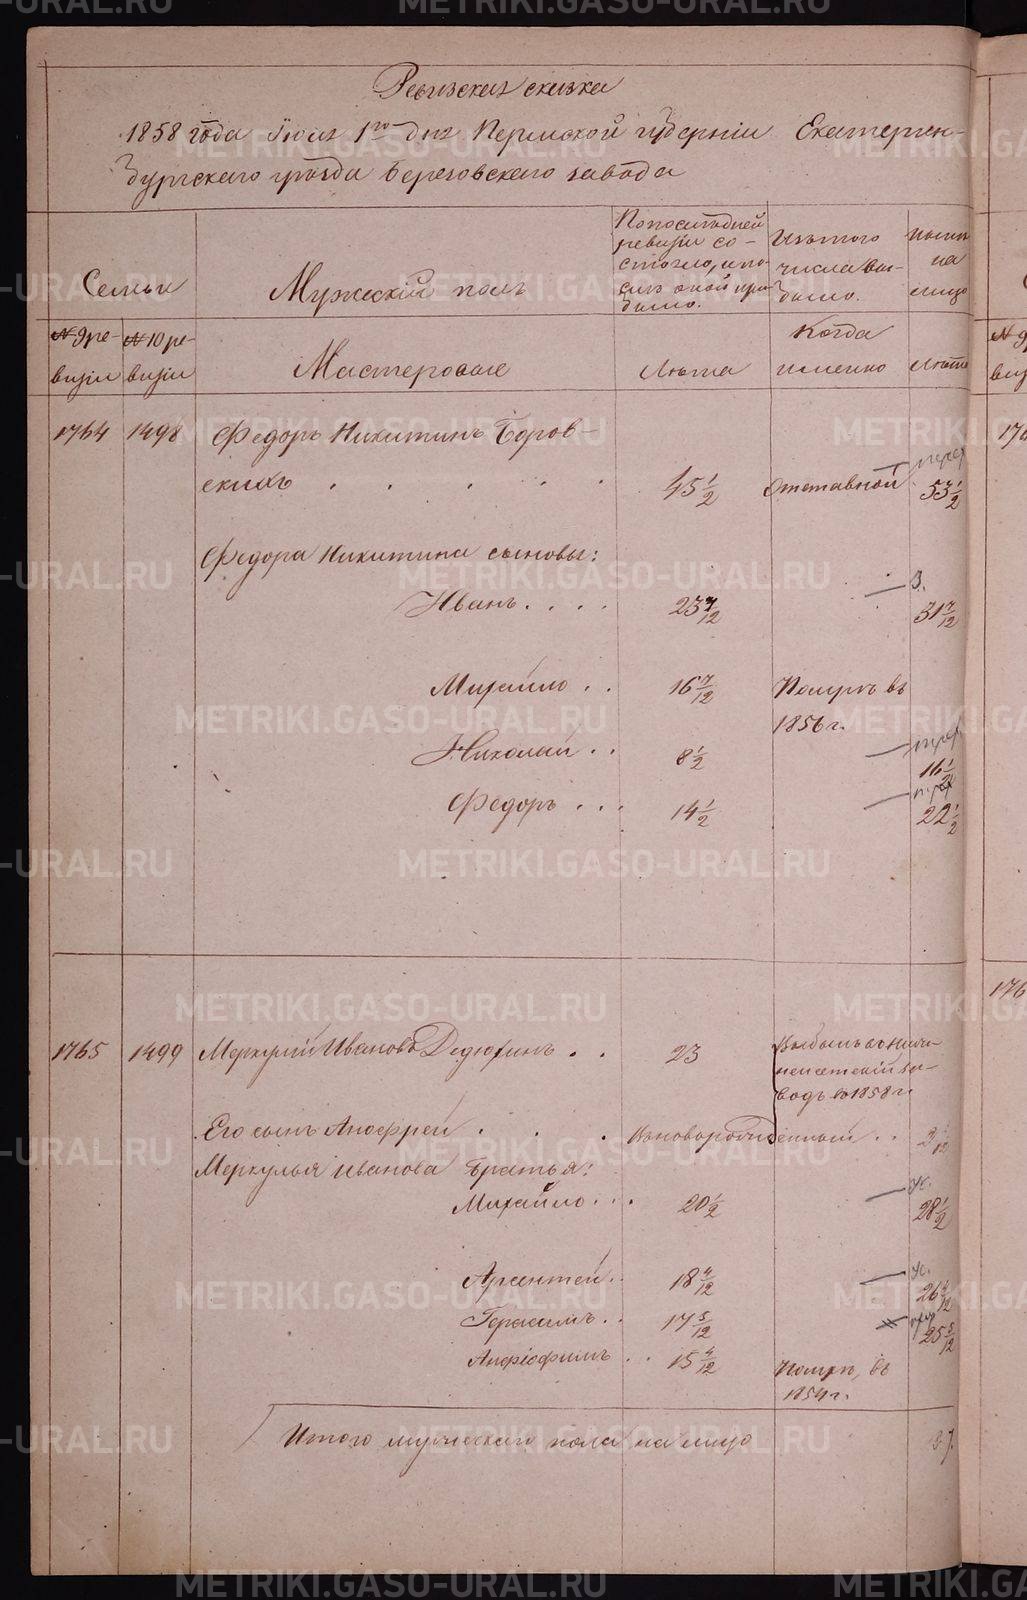 Ревизская сказка
1858 года Июля 1го дня Пермской губерніи Екатерин-
бургскаго уѣзда Березовскаго завода
Семьи
Мужескій полъ
По послѣдней ревизіи со-стояло, и по-слѣ оной при-было.
Изъ того числа вы-было.
Нынѣ на лицо
№ 9 ре-визіи
№ 10 ре-визіи
Мастеровые
Лѣта
Когда именно
Лѣта
1764 1498 Федоръ Никитинъ Боров-
скихъ . . . . . 45 1/2 Отставной 53 1/2
Федора Никитина сыновья:
Иванъ . . . . 23 7/12 В. 31 7/12
Михайло . . 16 7/12 Померъ въ
1856 г.
Николай . . 8 1/2 16 1/2
Федоръ . . . 14 1/2 22 1/2
1765 1499 Меркулій Ивановъ Дедюхинъ . . 23 Выбылъ въ Нижн-
исетскій за-
водъ въ 1858 г.
Его сынъ Анофрей . . . Новорожденный . .
Меркулья Иванова братья:
Михайло . . . 20 1/2 28 1/2
Арсентей . . 18 4/12 26 4/12
Герасимъ . . 17 5/12 25 5/12
. . 15 4/12 Померъ въ
1854 г.
Итого мужескаго пола на лицо
METRIKI.GASO-URAL.RU